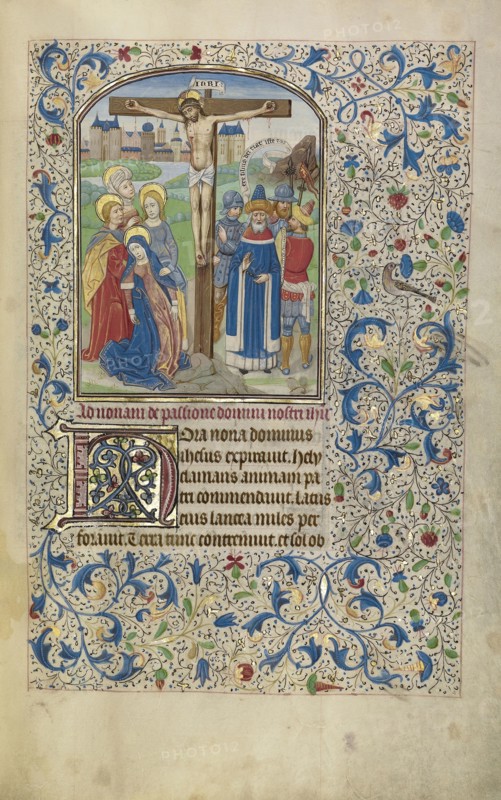 INRI
Ad nonam de passione domini nostri ihu
Hora nona dominus
ihesus expirauit. Hely
clamans animam pa
tri commendauit. Latus
eius lancea miles per
forauit. Terra tunc contremuit. et sol ob
PHOTO12